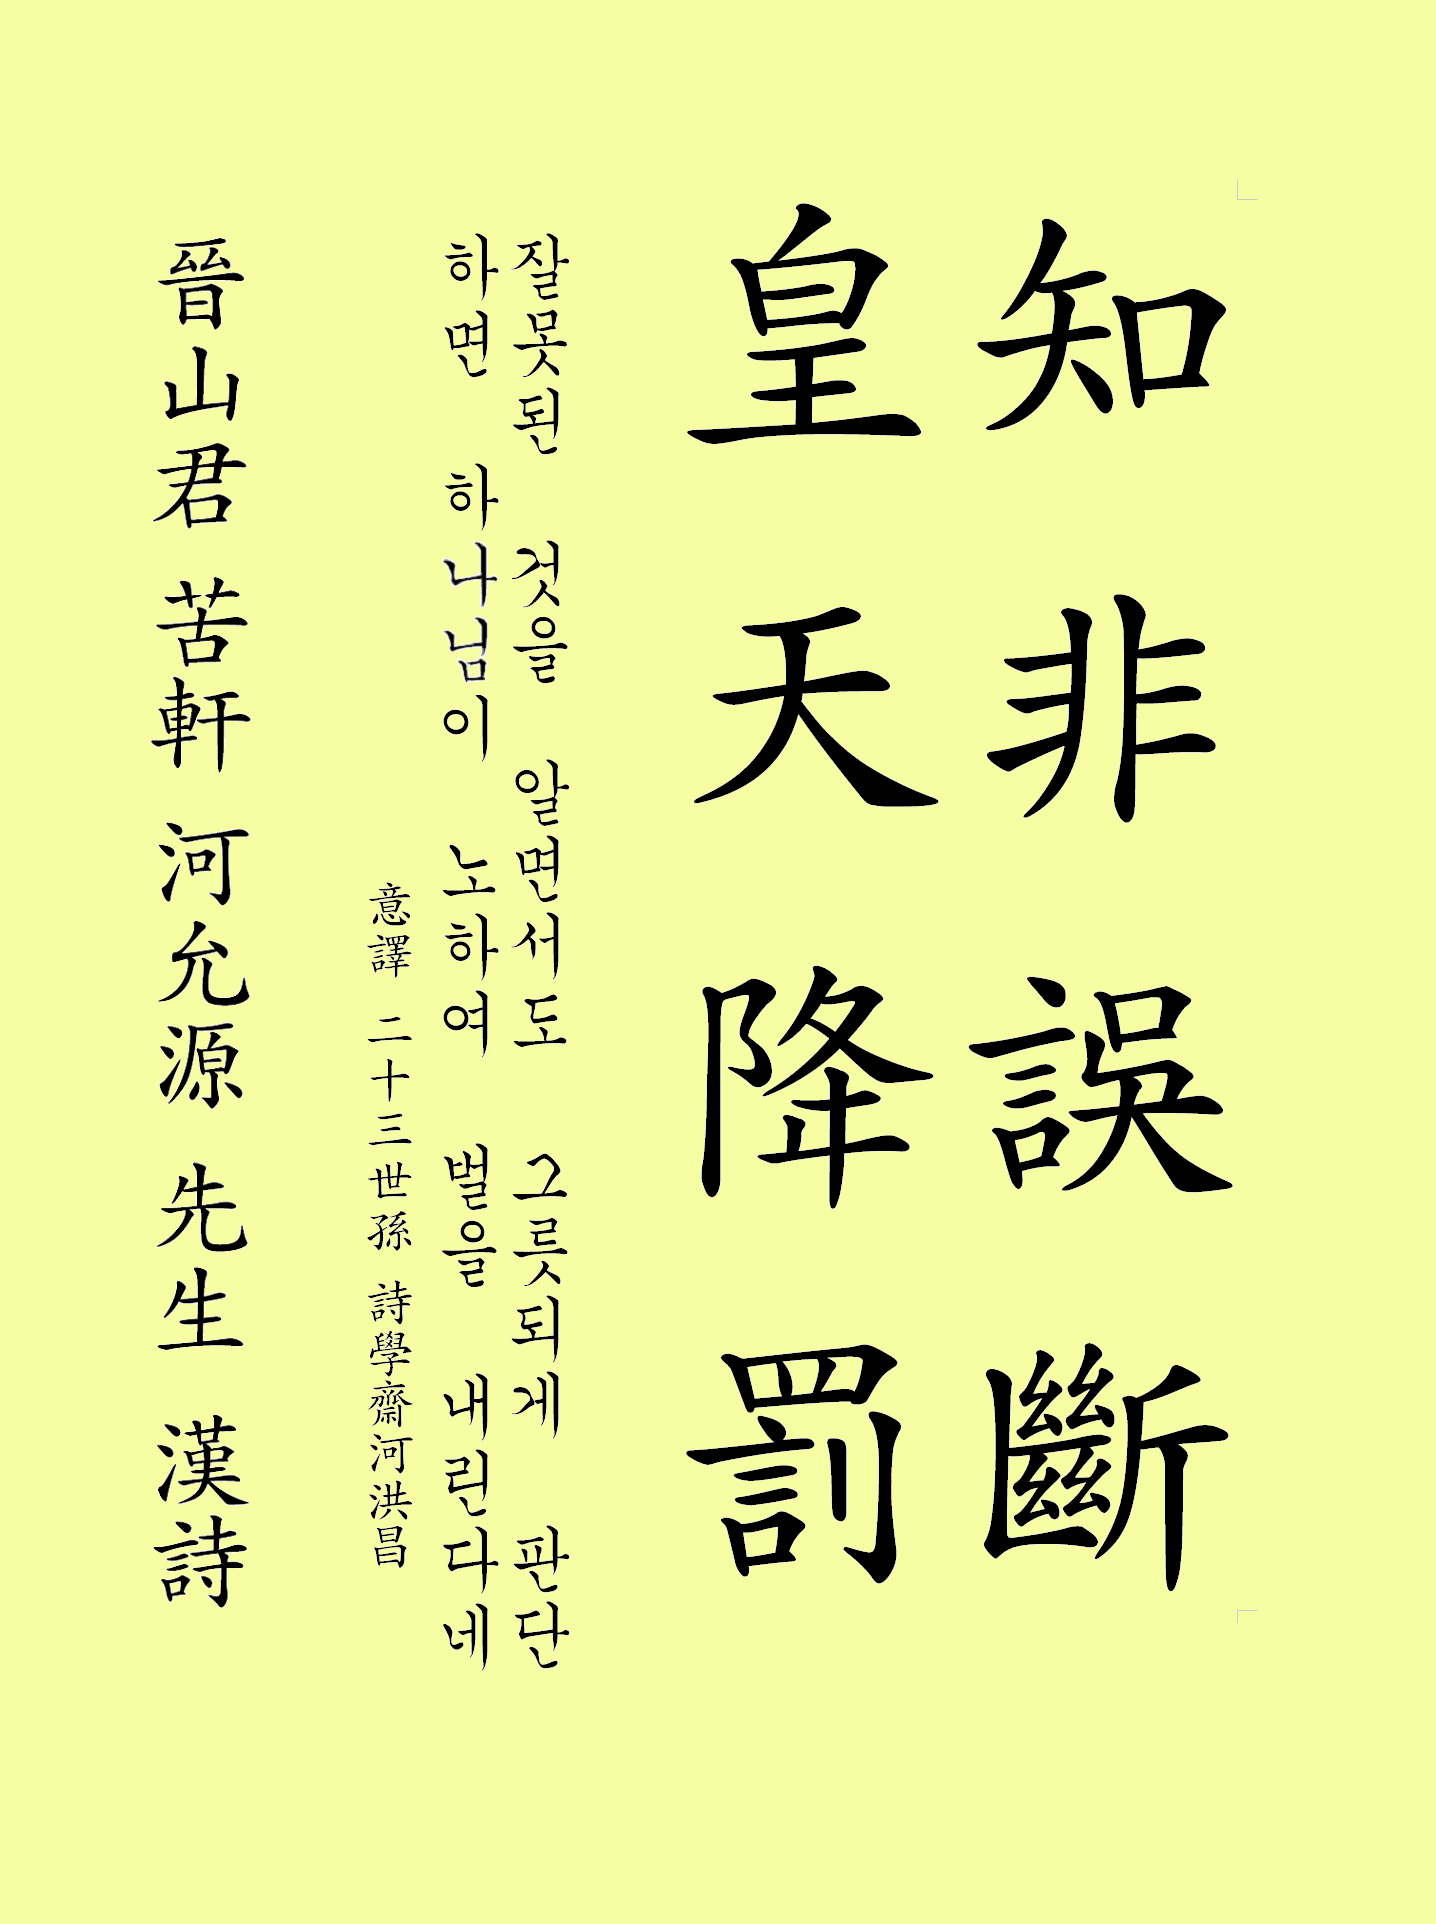 知非誤斷
皇天降罰
잘못된 것을 알면서도 그릇되게 판단
하면 하나님이 노하여 벌을 내린다네
意譯 二十三世孫 詩學齋河洪昌
晉山君 苦軒 河允源 先生 漢詩